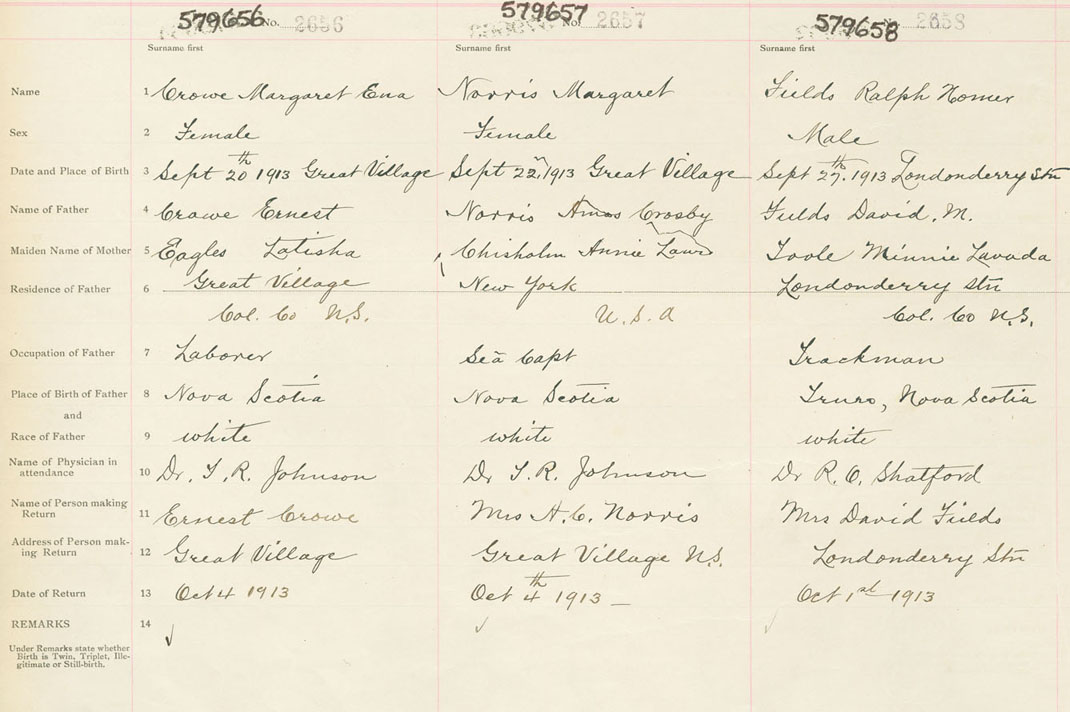 579656 No. 2656 579657 No. 2657 579658 2658
Surname first Surname first Surname first
Name 1 Crowe Margaret Ena Norris Margaret Fields Ralph Homer
Sex 2 Female Female Male
Date and Place of Birth 3 Sept 20th 1913 Great Village Sept 22n 1913 Great Village Sept 27th. 1913 Londonderry Stn
Name of Father 4 Crowe Ernest Norris Amos Crosby Fields David. M.
Maiden Name of Mother 5 Eagles Latisha Chisholm Annie Laura Toole Minnie Lavada
Residence of Father 6 Great Village New York Londonderry Stn
Col. Co N.S. U.S.A Col. Co N.S.
Occupation of Father 7 Laborer Sea Capt Trackman
Place of Birth of Father 8 Nova Scotia Nova Scotia Truro, Nova Scotia
and
Race of Father 9 white white white
Name of Physician in
attendance 10 Dr. T. R. Johnson Dr T.R. Johnson Dr R. O. Shatford
Name of Person making
Return 11 Ernest Crowe Mrs A.C. Norris Mrs David Fields
Address of Person mak-
ing Return 12 Great Village Great Village N.S. Londonderry Stn
Date of Return 13 Oct 4 1913 Oct 4th 1913 – Oct 1st 1913
REMARKS 14
Under Remarks state whether
Birth is Twin, Triplet, Ille-
gitimate or Still-birth.